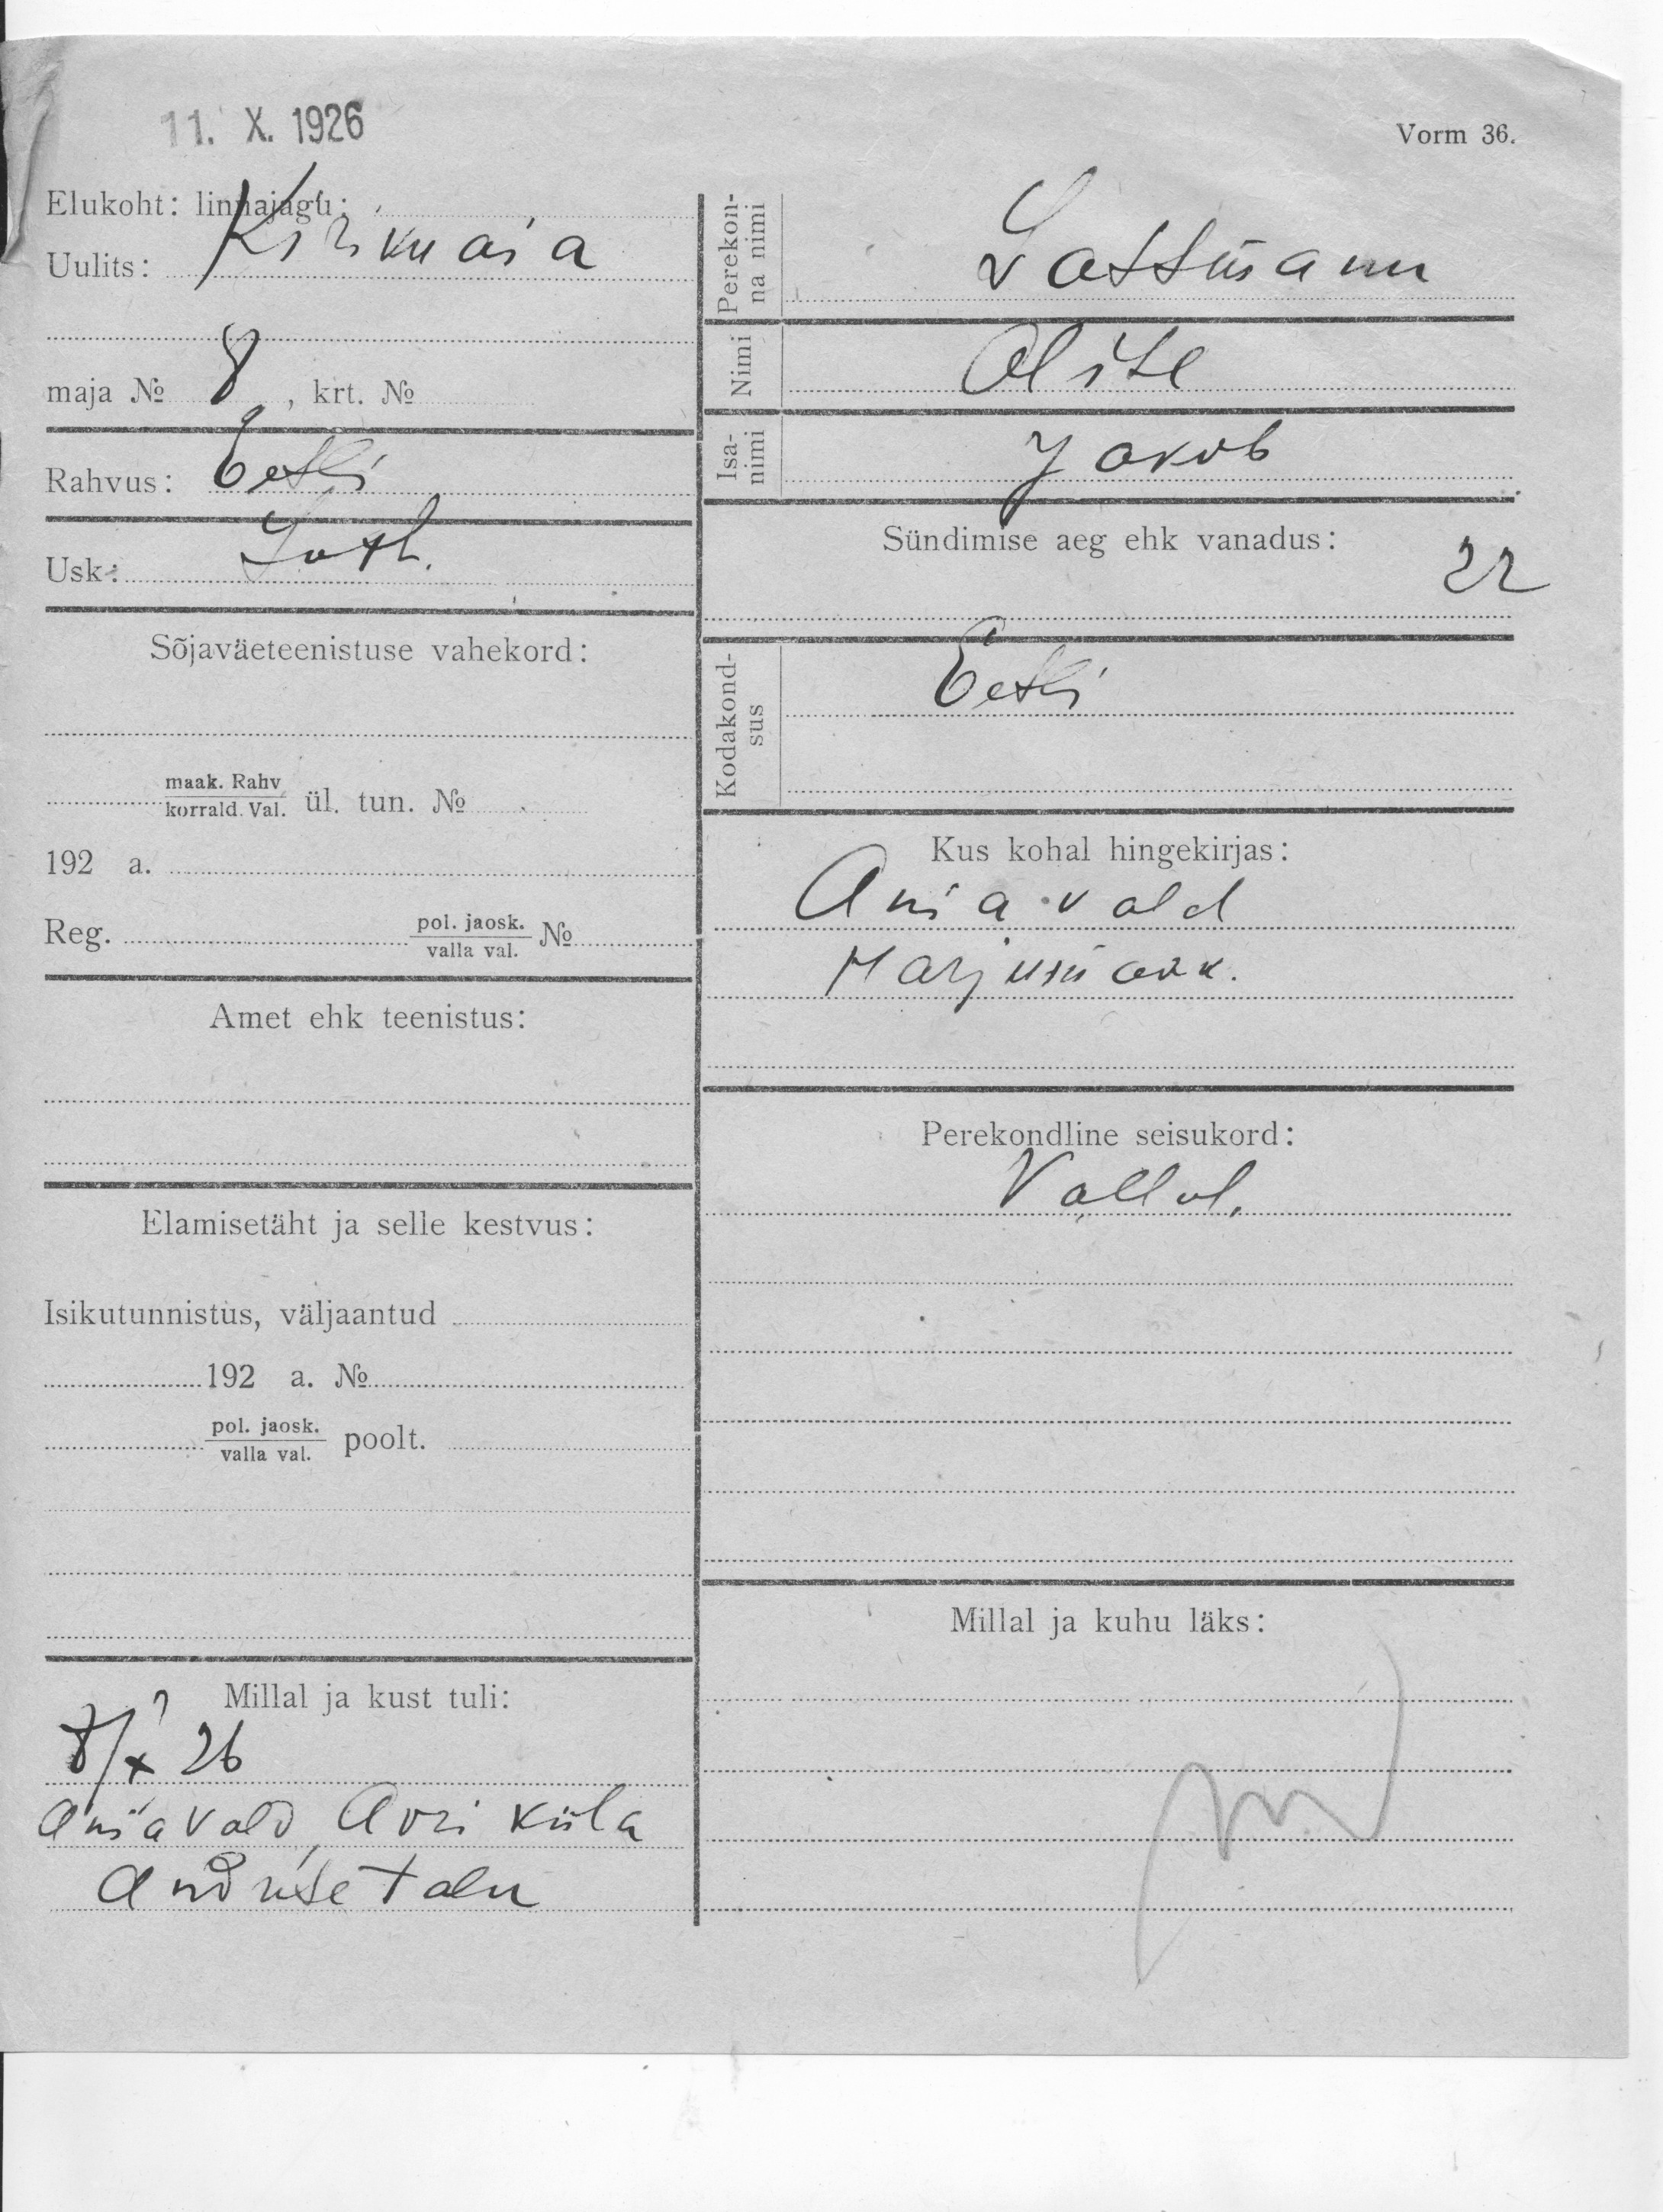 11. X. 1926
Vorm 36.
Elukoht: linnajagu:
Uulits: Kirikuaia
maja № 8, krt. №
Rahvus: Eesti
Usk: Luth.
Sõjaväeteenistuse vahekord:
maak. Rahv.
korrald. Val. ül. tun. №
192 a.
Reg. pol. jaosk.
valla val. №
Amet ehk teenistus:
Elamisetäht ja selle kestvus:
Isikutunnistus, väljaantud
192 a. №
pol. jaosk.
valla val. poolt.
Millal ja kust tuli:
8/X 26
Ania vald, Avri küla
Andruse talu
Perekon-
na nimi Lattmann
Nimi Alise
Isa-
nimi Jakob
Sündimise aeg ehk vanadus:
22
Kodakond-
sus Eesti
Kus kohal hingekirjas:
Ania vald
Harjumaak.
Perekondline seisukord:
Vallal.
Millal ja kuhu läks: